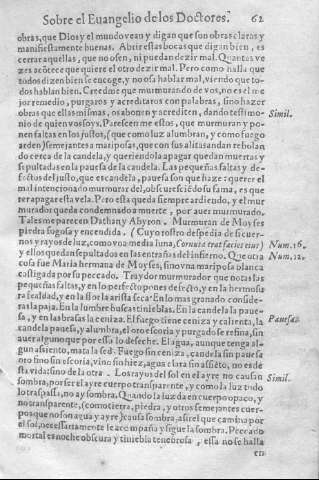 Sobre el Euangelio de los Doctores. 62
obras, que Dios y el mundo vean y digan que son obras claras y
manifiestamente buenas. Abrir estas bocas que digan bien, es
cerrar aquellas, que no osen, ni puedan dezir mal. Quantas ve
zes acótece que quiere el otro dezir mal. Pero como halla que
todos dizen bien se encoge, y no osa hablar mal, viendo que to-
dos hablan bien. Creedme que murmurando de vos, no es el me
jor remedio, purgaros y acreditaros con palabras, sino hazer
obras que ellas mismas, os abonen y acrediten, dando testimo-
nio de quien vos soys. Parescen me estos, que murmuran y po-
nen faltas en los justos, (que como luz alumbran, y como fuego
arden) semejantes a mariposas, que con sus alitas andan rebolan
do cerca de la candela, y queriendola apagar quedan muertas y
sepultadas en la pauesa de la candela. Las pequeñas faltas y de-
fectos del justo, que es candela, pauesa son que haze querer el
mal intencionado murmurar del, obscuresciédo su fama, es que
rer apagar esta vela. Pero esta queda siempre ardiendo, y el mur
murador queda condemnado a muerte, por auer murmurado.
Tales me parecen Dathan y Abyron. Murmuran de Moyses
piedra fogosa y encendida. (Cuyo rostro despedia de si cuer-
nos y rayos de luz, como vna media luna, Cornuta erat facies eius)
y ellos quedan sepultados en las entrañas del infierno. Que otra
cosa fue Maria hermana de Moyses, sino vna mariposa blanca
castigada por su peccado. Traydor murmurador que notas las
pequeñas faltas, y en lo perfecto pones defecto, y en la hermosu
ra fealdad, y en la flor la arista seca? En lo mas granado conside-
ras la paja. En la lumbre buscas tinieblas. En la candela la paue-
sa, y en las brasas la ceniza. El fuego tiene ceniza y calienta, la
candela pauesa, y alumbra, el oro escoria y purgado se refina, sin
auer alguno que por esso lo deseche. El agua, aunque tenga al-
gun assiento, mata la sed. Fuego sin ceniza, candela sin pauesa
oro fino sin escoria, vino sin hiez, agua clara sin assiéto, no es de
sta vida: sino de la otra. Los rayos del sol en el ayre no causan
sombra, por ser el ayre cuerpo transparente, y como la luz todo
lo traspassa, no ay sombra. Quando la luz da en cuerpo opaco, y
no transparente, (como tierra, piedra, y otros semejantes cuer-
pos que no son agua y ayre) causa sombra, assi el que camina por
el sol, necessariamente le acompaña y sigue la sombra. Peccado
mortal es noche obscura y tiniebla tenebrosa, essa no se halla
en
Simil.
Num. 16.
Num. 12.
Pauesas.
Simil.